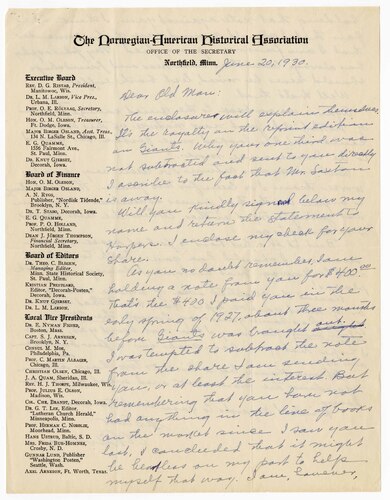 The Norwegian-American Historical Association
OFFICE OF THE SECRETARY
Northfield, Minn. June 20, 1930.
Executive Board
REV. D. G. RISTAD, President,
Manitowoc, Wis.
DR. L. M. LARSON, Vice Pres.,
Urbana, Ill.
PROF. O. E. RÖLVAAG, Secretary,
Northfield, Minn.
HON. O. M. OLESON, Treasurer,
Ft. Dodge, Iowa.
MAJOR BIRGER OSLAND, Asst. Treas.,
134 N. LaSalle St., Chicago, Ill.
E. G. QUAMME,
1596 Fairmont Ave.,
St. Paul, Minn.
DR. KNUT GJERSET,
Decorah, Iowa.
Board of Finance
HON. O. M. OLESON,
MAJOR BIRGER OSLAND,
A. N. RYGG,
Publisher, "Nordisk Tidende,"
Brooklyn, N. Y.
DR. T. STABO, Decorah, Iowa.
E. G. QUAMME,
PROF. P. O. HOLLAND,
Northfield, Minn.
DEAN J. JÖRGEN THOMPSON,
Financial Secretary,
Northfield, Minn.
Board of Editors
DR. THEO. C. BLEGEN,
Managing Editor,
Minn. State Historical Society,
St. Paul, Minn.
KRISTIAN PRESTGARD,
Editor, "Decorah-Posten,"
Decorah, Iowa.
DR. L. M. LARSON
DR. KNUT GJERSET
Local Vice Presidents
DR. E. NYMAN FIGVED,
Boston, Mass.
CAPT. S. J. ARNESEN,
Brooklyn, N. Y.
CONSUL M. MOE
Philadelphia, Pa.
PROF. C. MARTIN ALSAGER,
Chicago, Ill.
CHRISTIAN OLSEN, Chicago, Ill.
J. A. QUAM, Sheridan, Ill.
REV. H. J. THORPE, Milwaukee, Wis.
PROF. JULIUS E. OLSON,
Madison, Wis.
COL. CHR. BRANDT, Decorah, Iowa.
DR. G. T. LEE, Editor
"Lutheran Church Herald,"
Minneapolis, Minn.
PROF. HERMAN C. NORDLIE,
Moorhead, Minn.
HANS USTRUD, Baltic, S. D.
MRS. FRIDA BUE-HOMNES,
Crosby, N. D.
GUNNAR LUND, Publisher
"Washington Posten,"
Seattle, Wash.
AXEL ARNESON, Ft. Worth, Texas.
Dear Old Man:
The enclosures will explain themselves.
It's the royalty on the reprint edition
on Giants. Why your one third was
not subtracted and sent to you directly
I ascribe to the fact that Mr. Saxton
is away.
Will you kindly sign below my
name and return the statement to
Harpers. I enclose my check for your
share.
As you no doubt remember, I am
holding a note from you for $400.00
That's the $400 I paid you in the
early spring of 1927, about three months
before Giants was brought out.
I was tempted to subtract the note
from the share I am sending
you or at least the interest. But
remembering that you have not
had anything in the line of books
on the market since I saw you
last, I concluded that it might
be on my part to help
myself that way. I am, however,